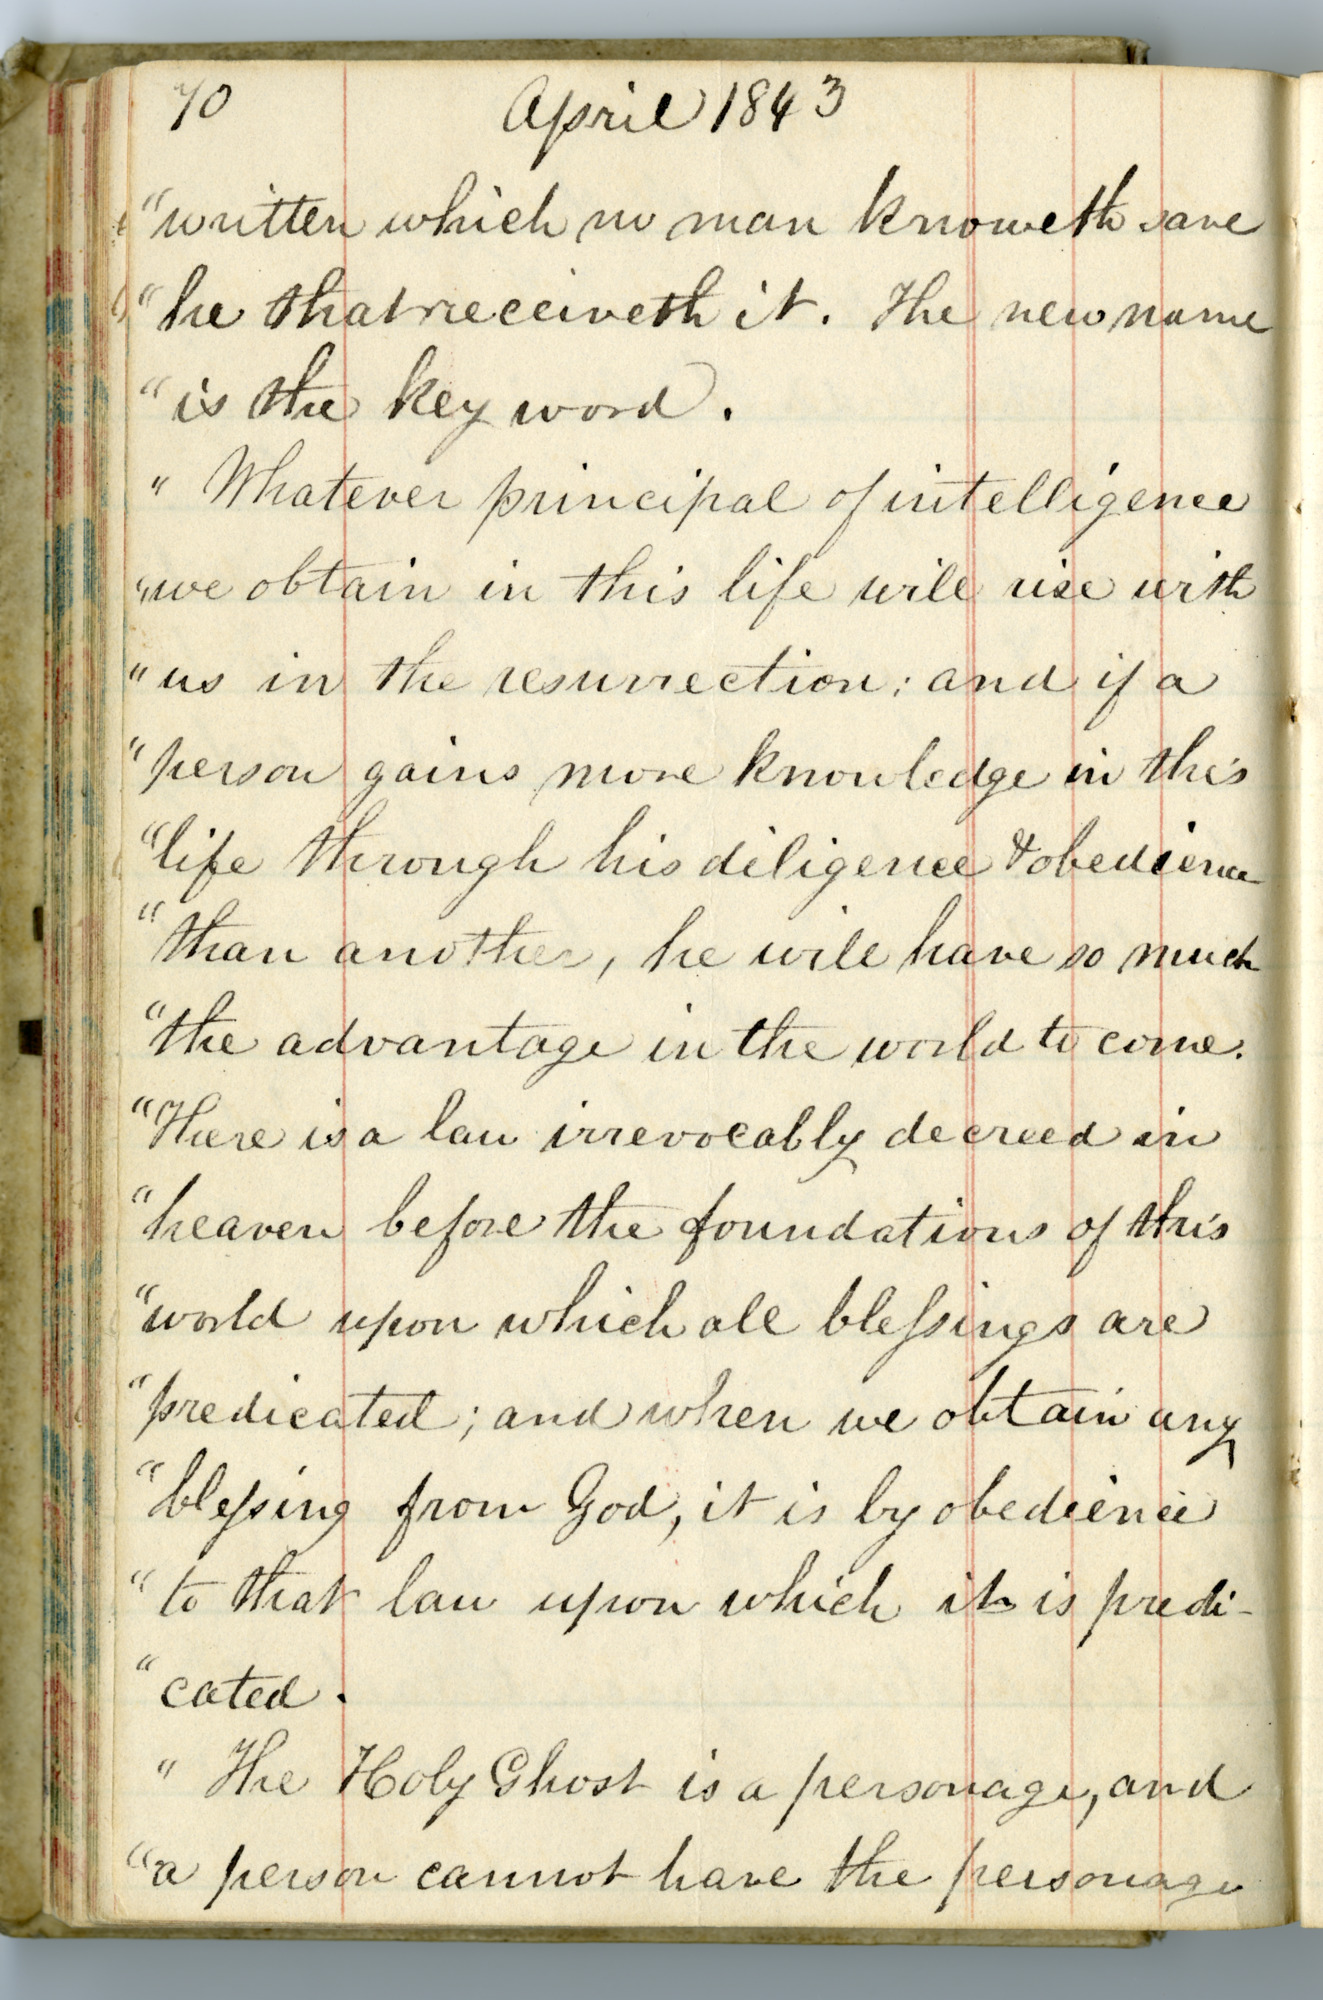 70 April 1843
"written which no man knoweth save
"he that receiveth it. The new name
"is the key word.
" Whatever principal of intelligence
"we obtain in this life will rise with
"us in the resurrection; and if a
"person gains more knowledge in this
"life through his diligence & obedience
"than another, he will have so much
"the advantage in the world to come.
"There is a law irrevocably decreed in
"heaven before the foundations of this
"world upon which all blessings are
"predicated; and when we obtain any
"blessing from God, it is by obedience
"to that law upon which it is predi-
"cated.
" The Holy Ghost is a personage, and
"a person cannot have the personage